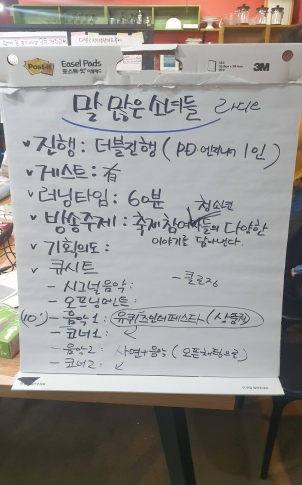 Post-it Easel Pads
포스트-잇 이젤패드
3M
말 많은 소녀들 라디오
✓ 진행 : 더블진행 ( PD 1인 )
✓ 게스트 : 有
✓ 러닝타임 : 60분
청소년
✓ 방송주제 : 축제참여자들의 다양한
이야기를 담아낸다.
✓ 기획의도 :
✓ 큐시트
- 시그널음악 :
- 클로징
- 오프닝멘트 :
(10') - 음악 1 :
- 코너1 : ↙
- 음악2 : 사연+음악 ( 오픈채팅으로 )
- 코너2 : ↙